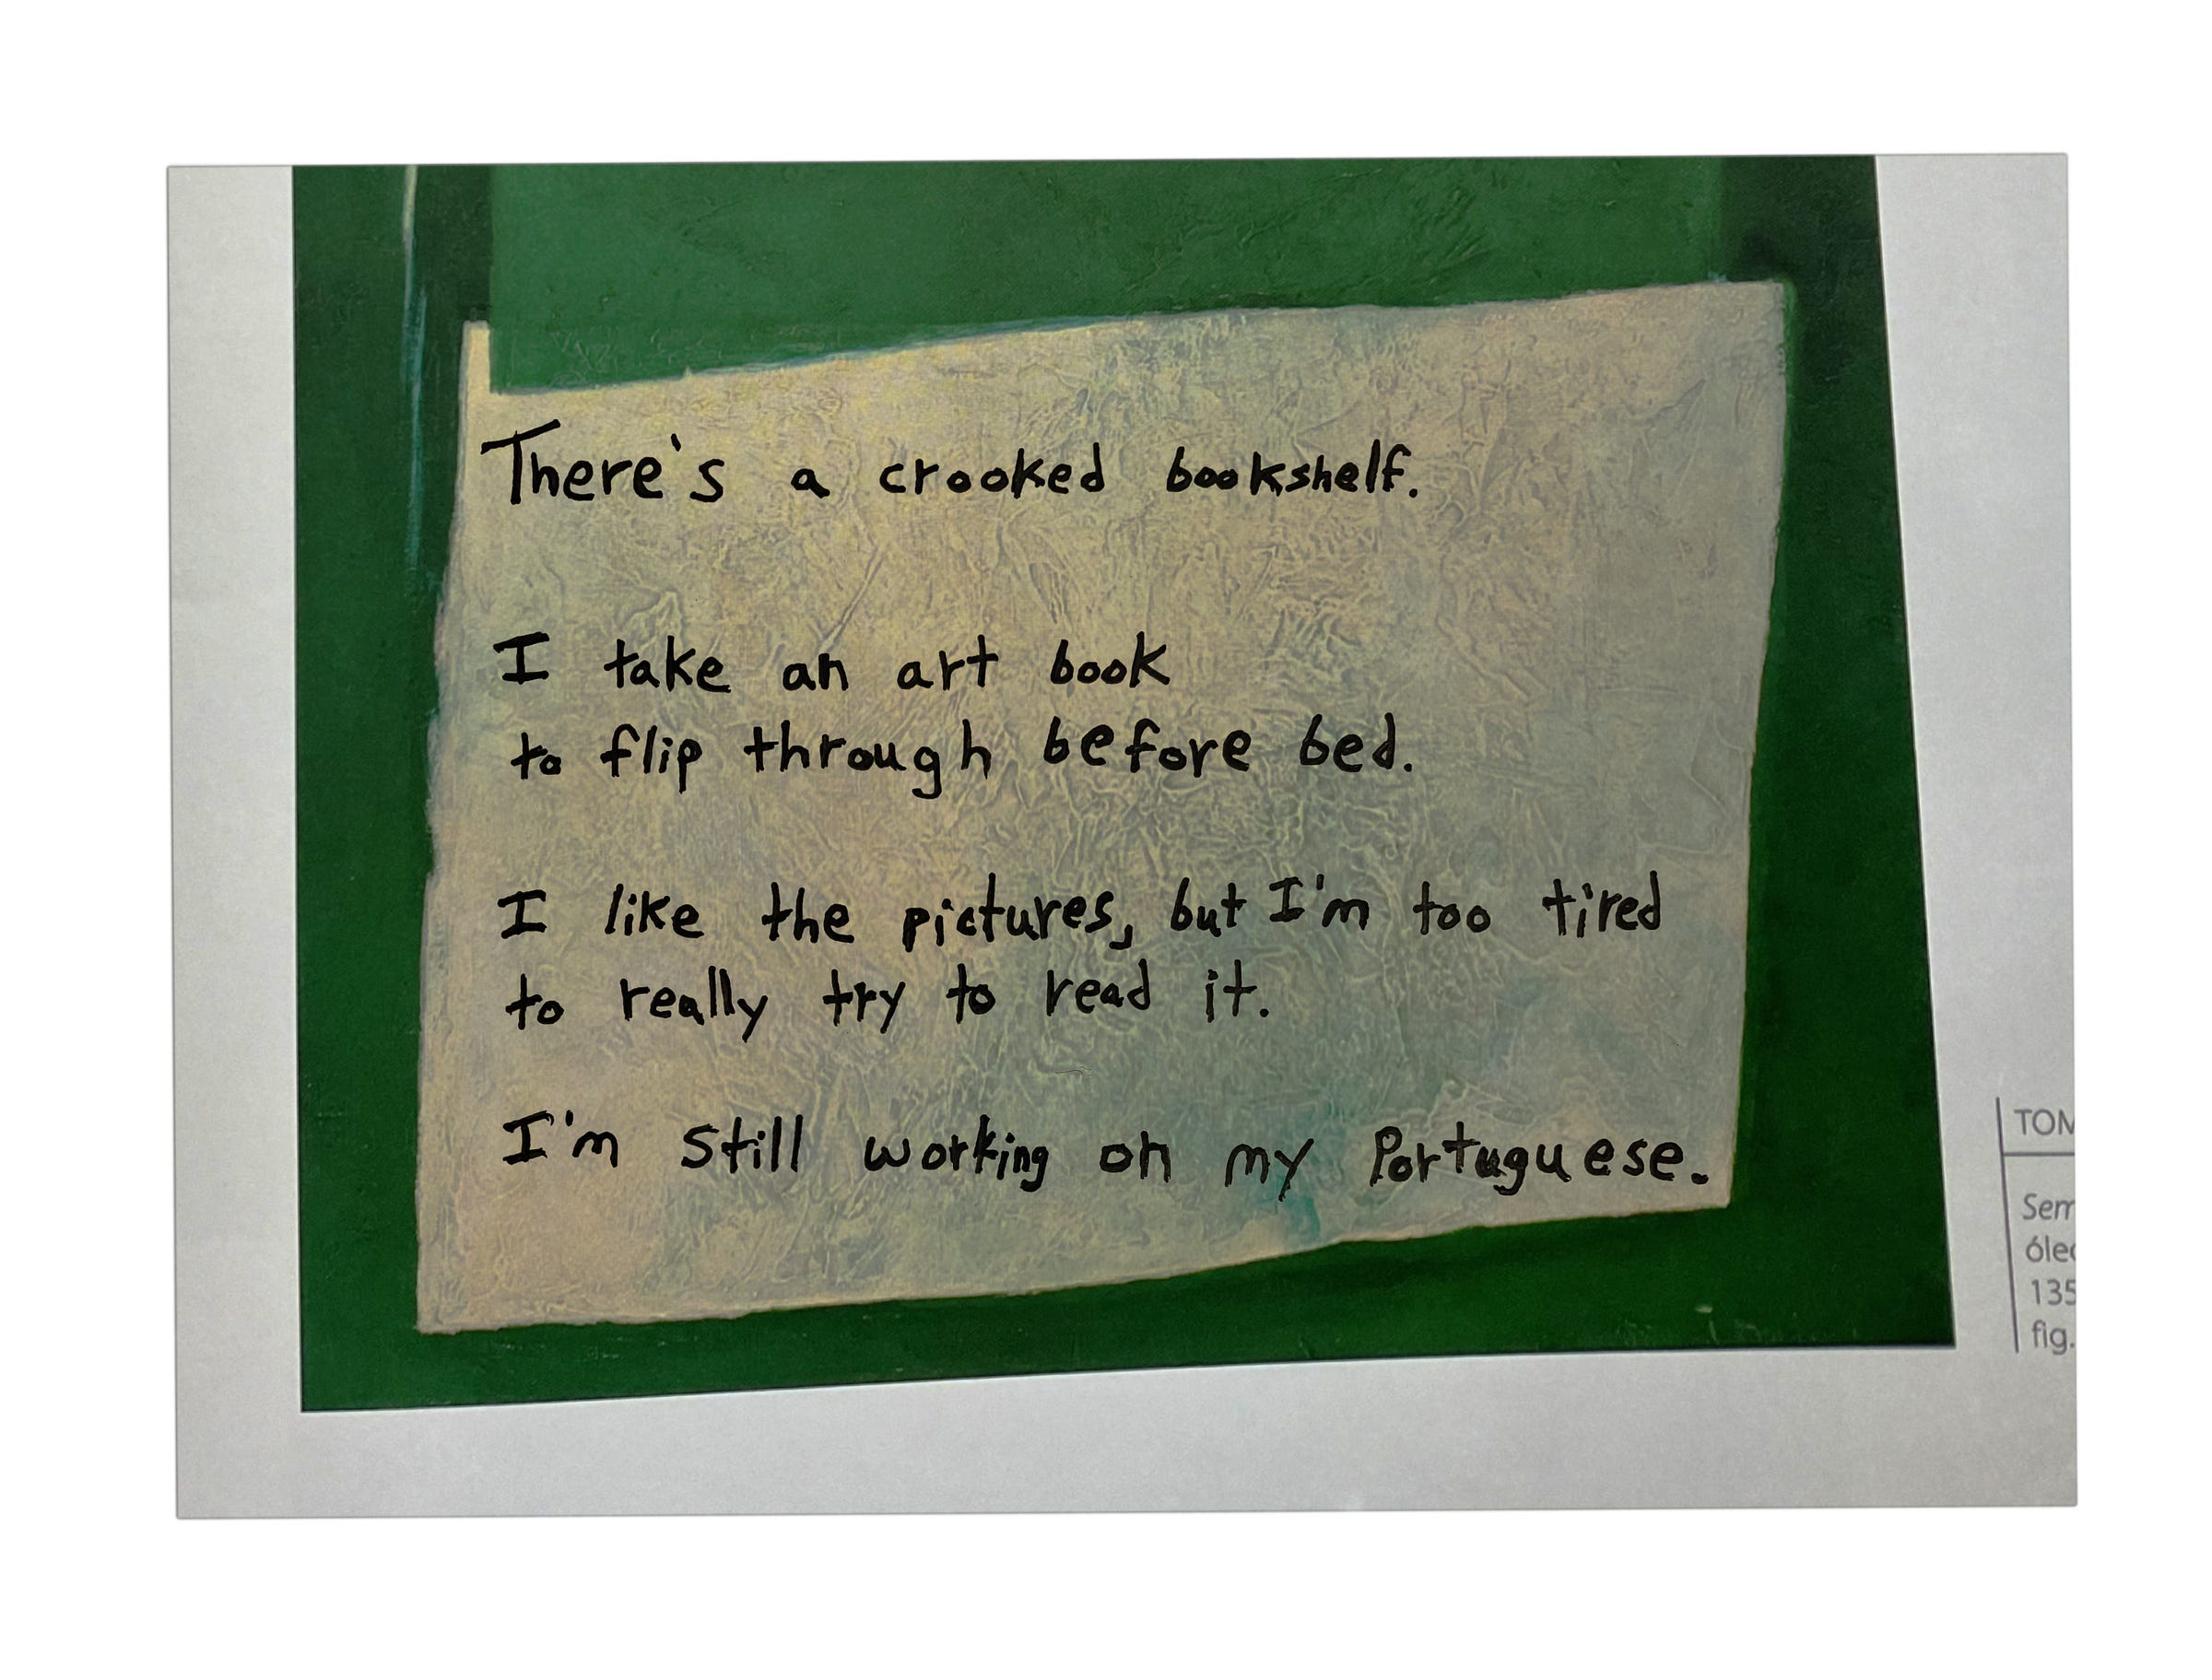 There's a crooked bookshelf.
I take an art book
to flip through before bed.
I like the pictures, but I'm too tired
to really try to read it.
I'm still working on my Portuguese.
135
fig.